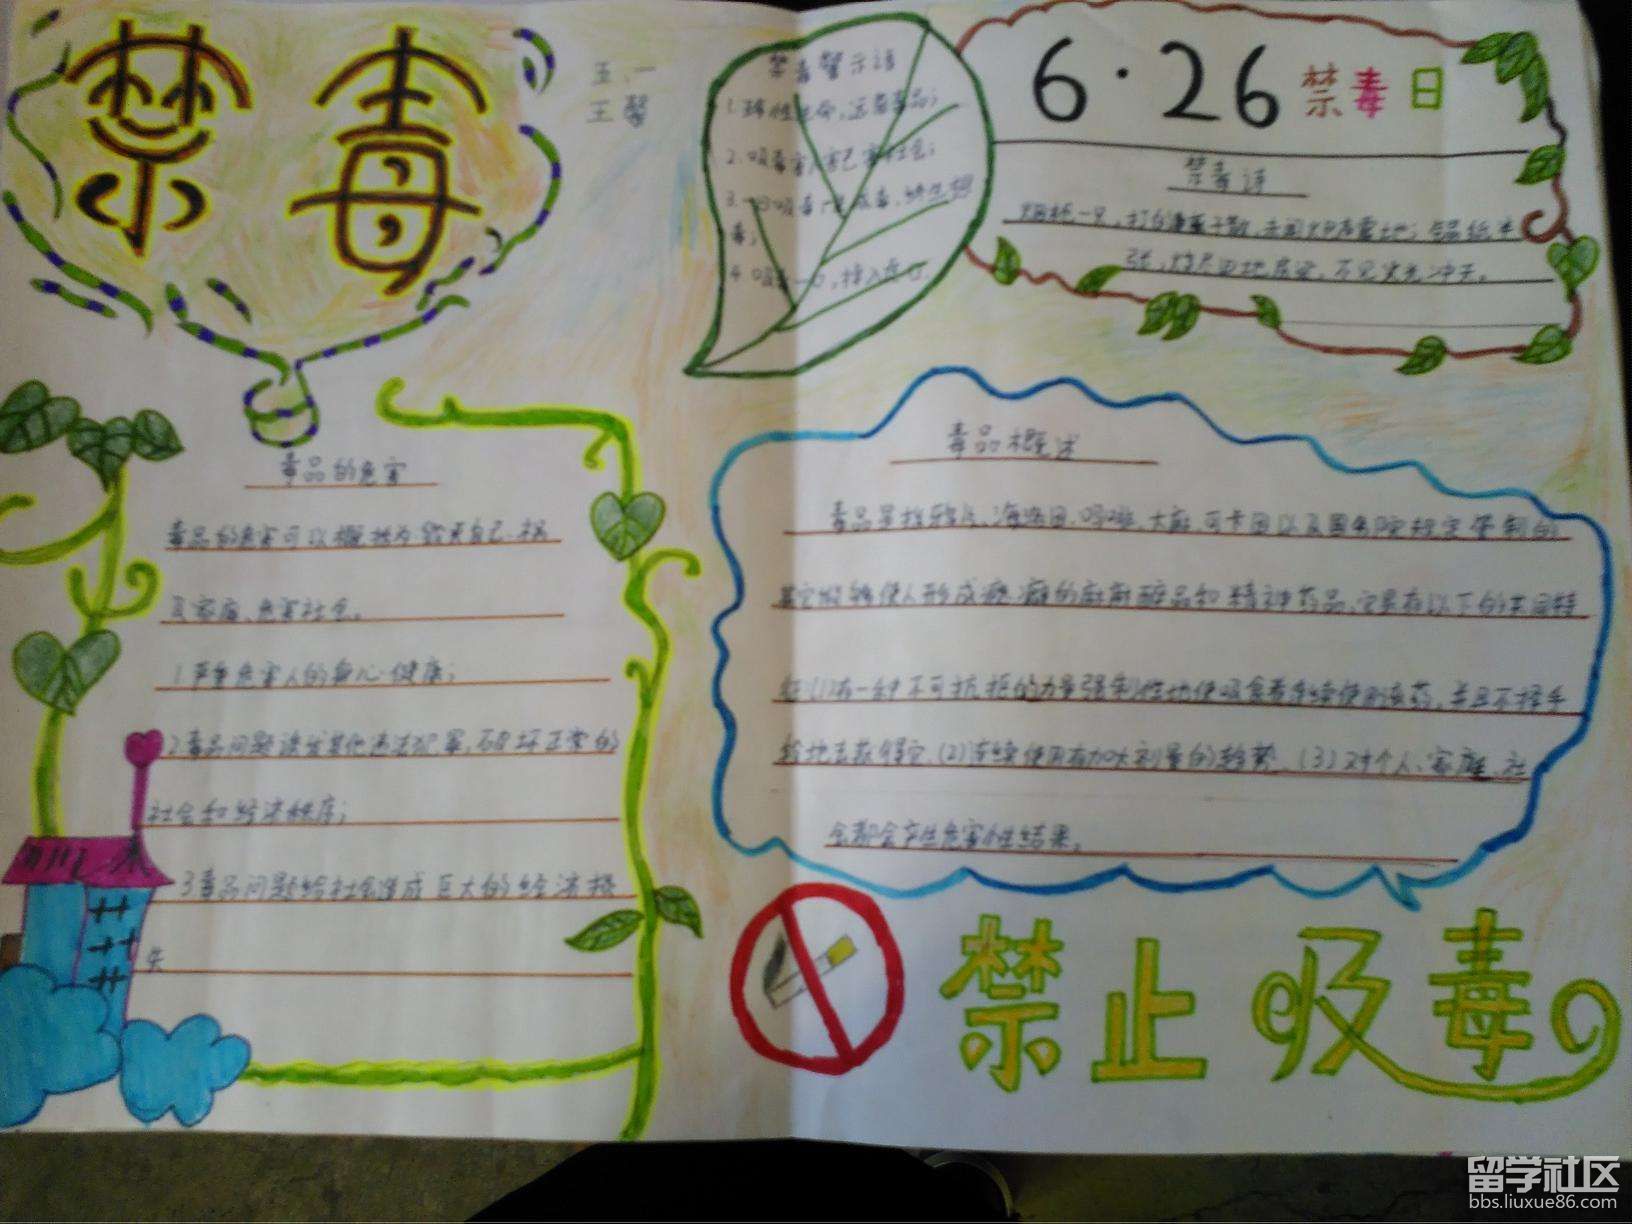 禁毒
五、一
王馨
禁毒警示语
1.珍惜生命,远离毒品;
2.吸毒害人害己害社会;
3.一日吸毒
毒;
4.吸毒一口,掉入虎口.
6·26禁毒日
禁毒诗
张,灼尺
毒品的危害
毒品的危害可以概括为:毁灭自己、祸
及家庭、危害社会。
1严重危害人的身心健康;
2毒品问题诱发其他违法犯罪,破坏正常的
社会和经济秩序;
3毒品问题给社会造成巨大的经济损
失
毒品概述
毒品是指鸦片、海洛因、吗啡、大麻、可卡因以及国务院规定管制的
其它能够使人形成瘾癖的麻醉品和精神药品,它具有以下的共同特
征:(1)有一种不可抗拒的力量强制性地使吸食者连续使用该药,并且不择手
段地去获得它、(2)连续使用有加大剂量的趋势、(3)对个人、家庭、社
会都会产生危害性结果。
禁止吸毒
留学社区
bbs.liuxue86.com